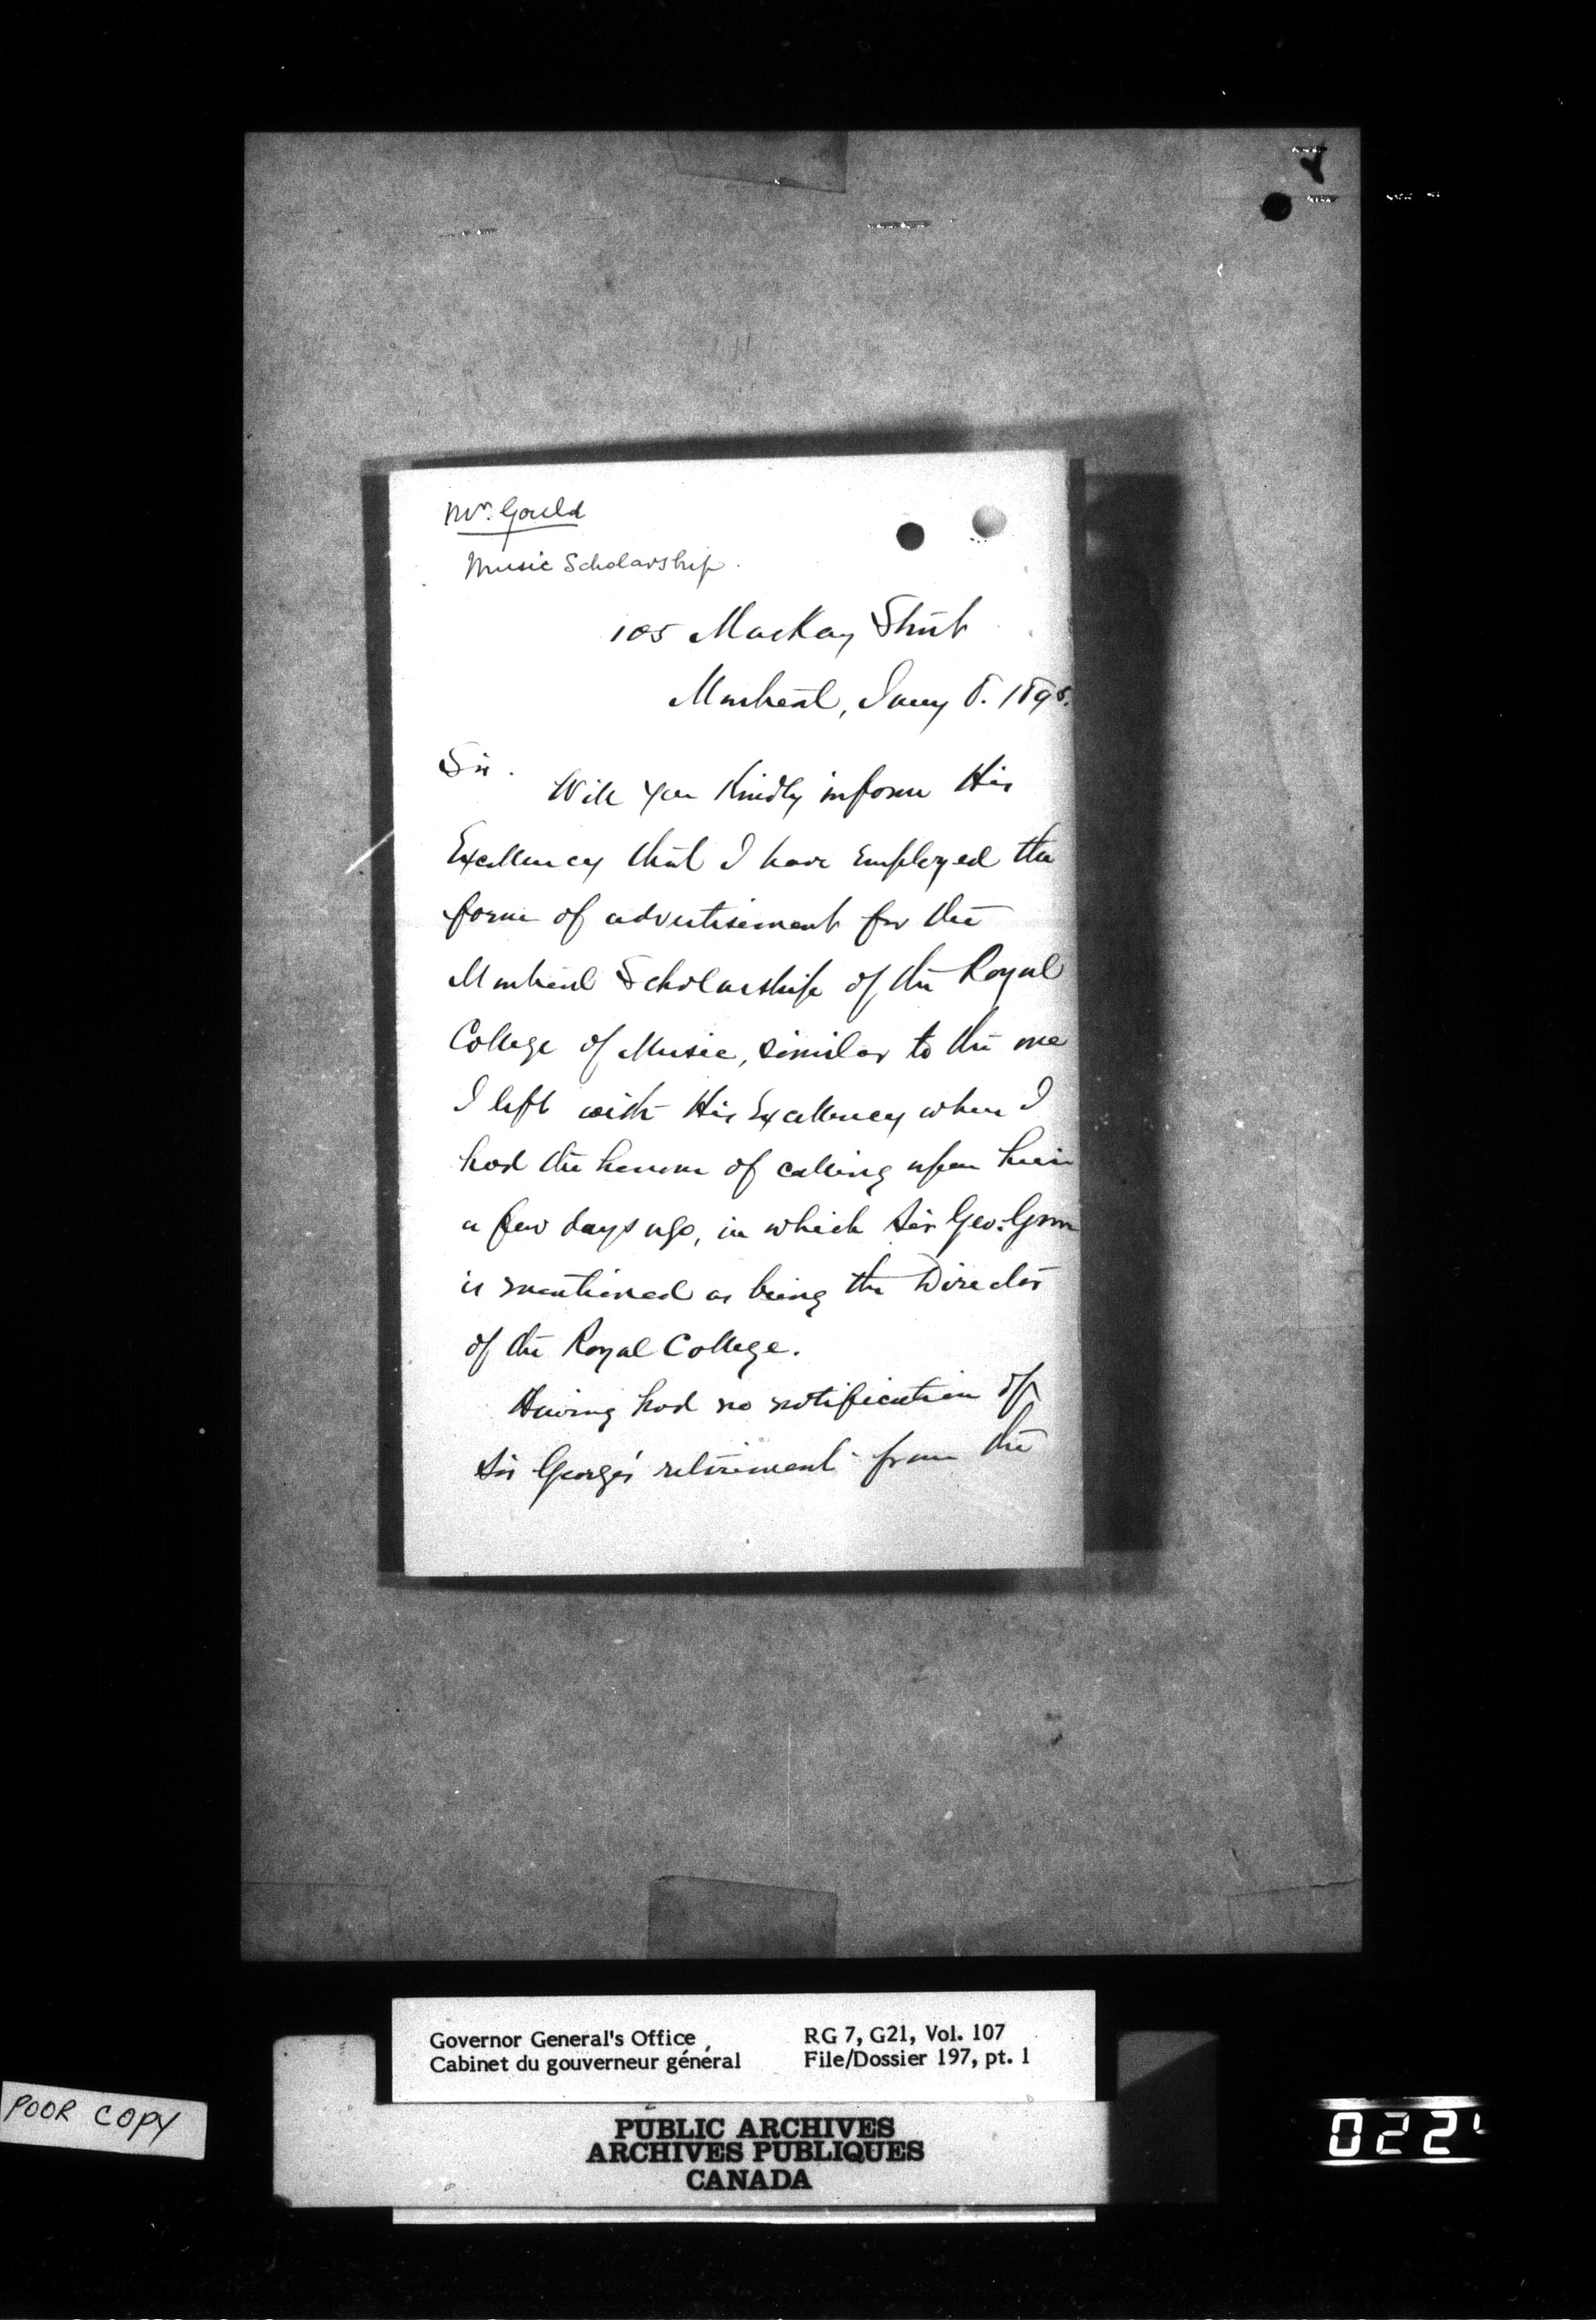 Mr. Gould
Music Scholarship.
105 MacKay Street
Montreal, Jany 8. 189
Sir.
Will you kindly inform His
Excellency that I have employed the
form of advertisement for the
Montreal Scholarship of the Royal
College of Music, similar to the one
I left with His Excellency when I
had the honour of calling upon him
a few days ago, in which Sir Geo: Grove
is mentioned as being the Director
of the Royal College.
Having had no notification of
Sir George's retirement from the
Governor General's Office
Cabinet du gouverneur général
RG 7, G21, Vol. 107
File/Dossier 197, pt. 1
POOR COPY
PUBLIC ARCHIVES
ARCHIVES PUBLIQUES
CANADA
022